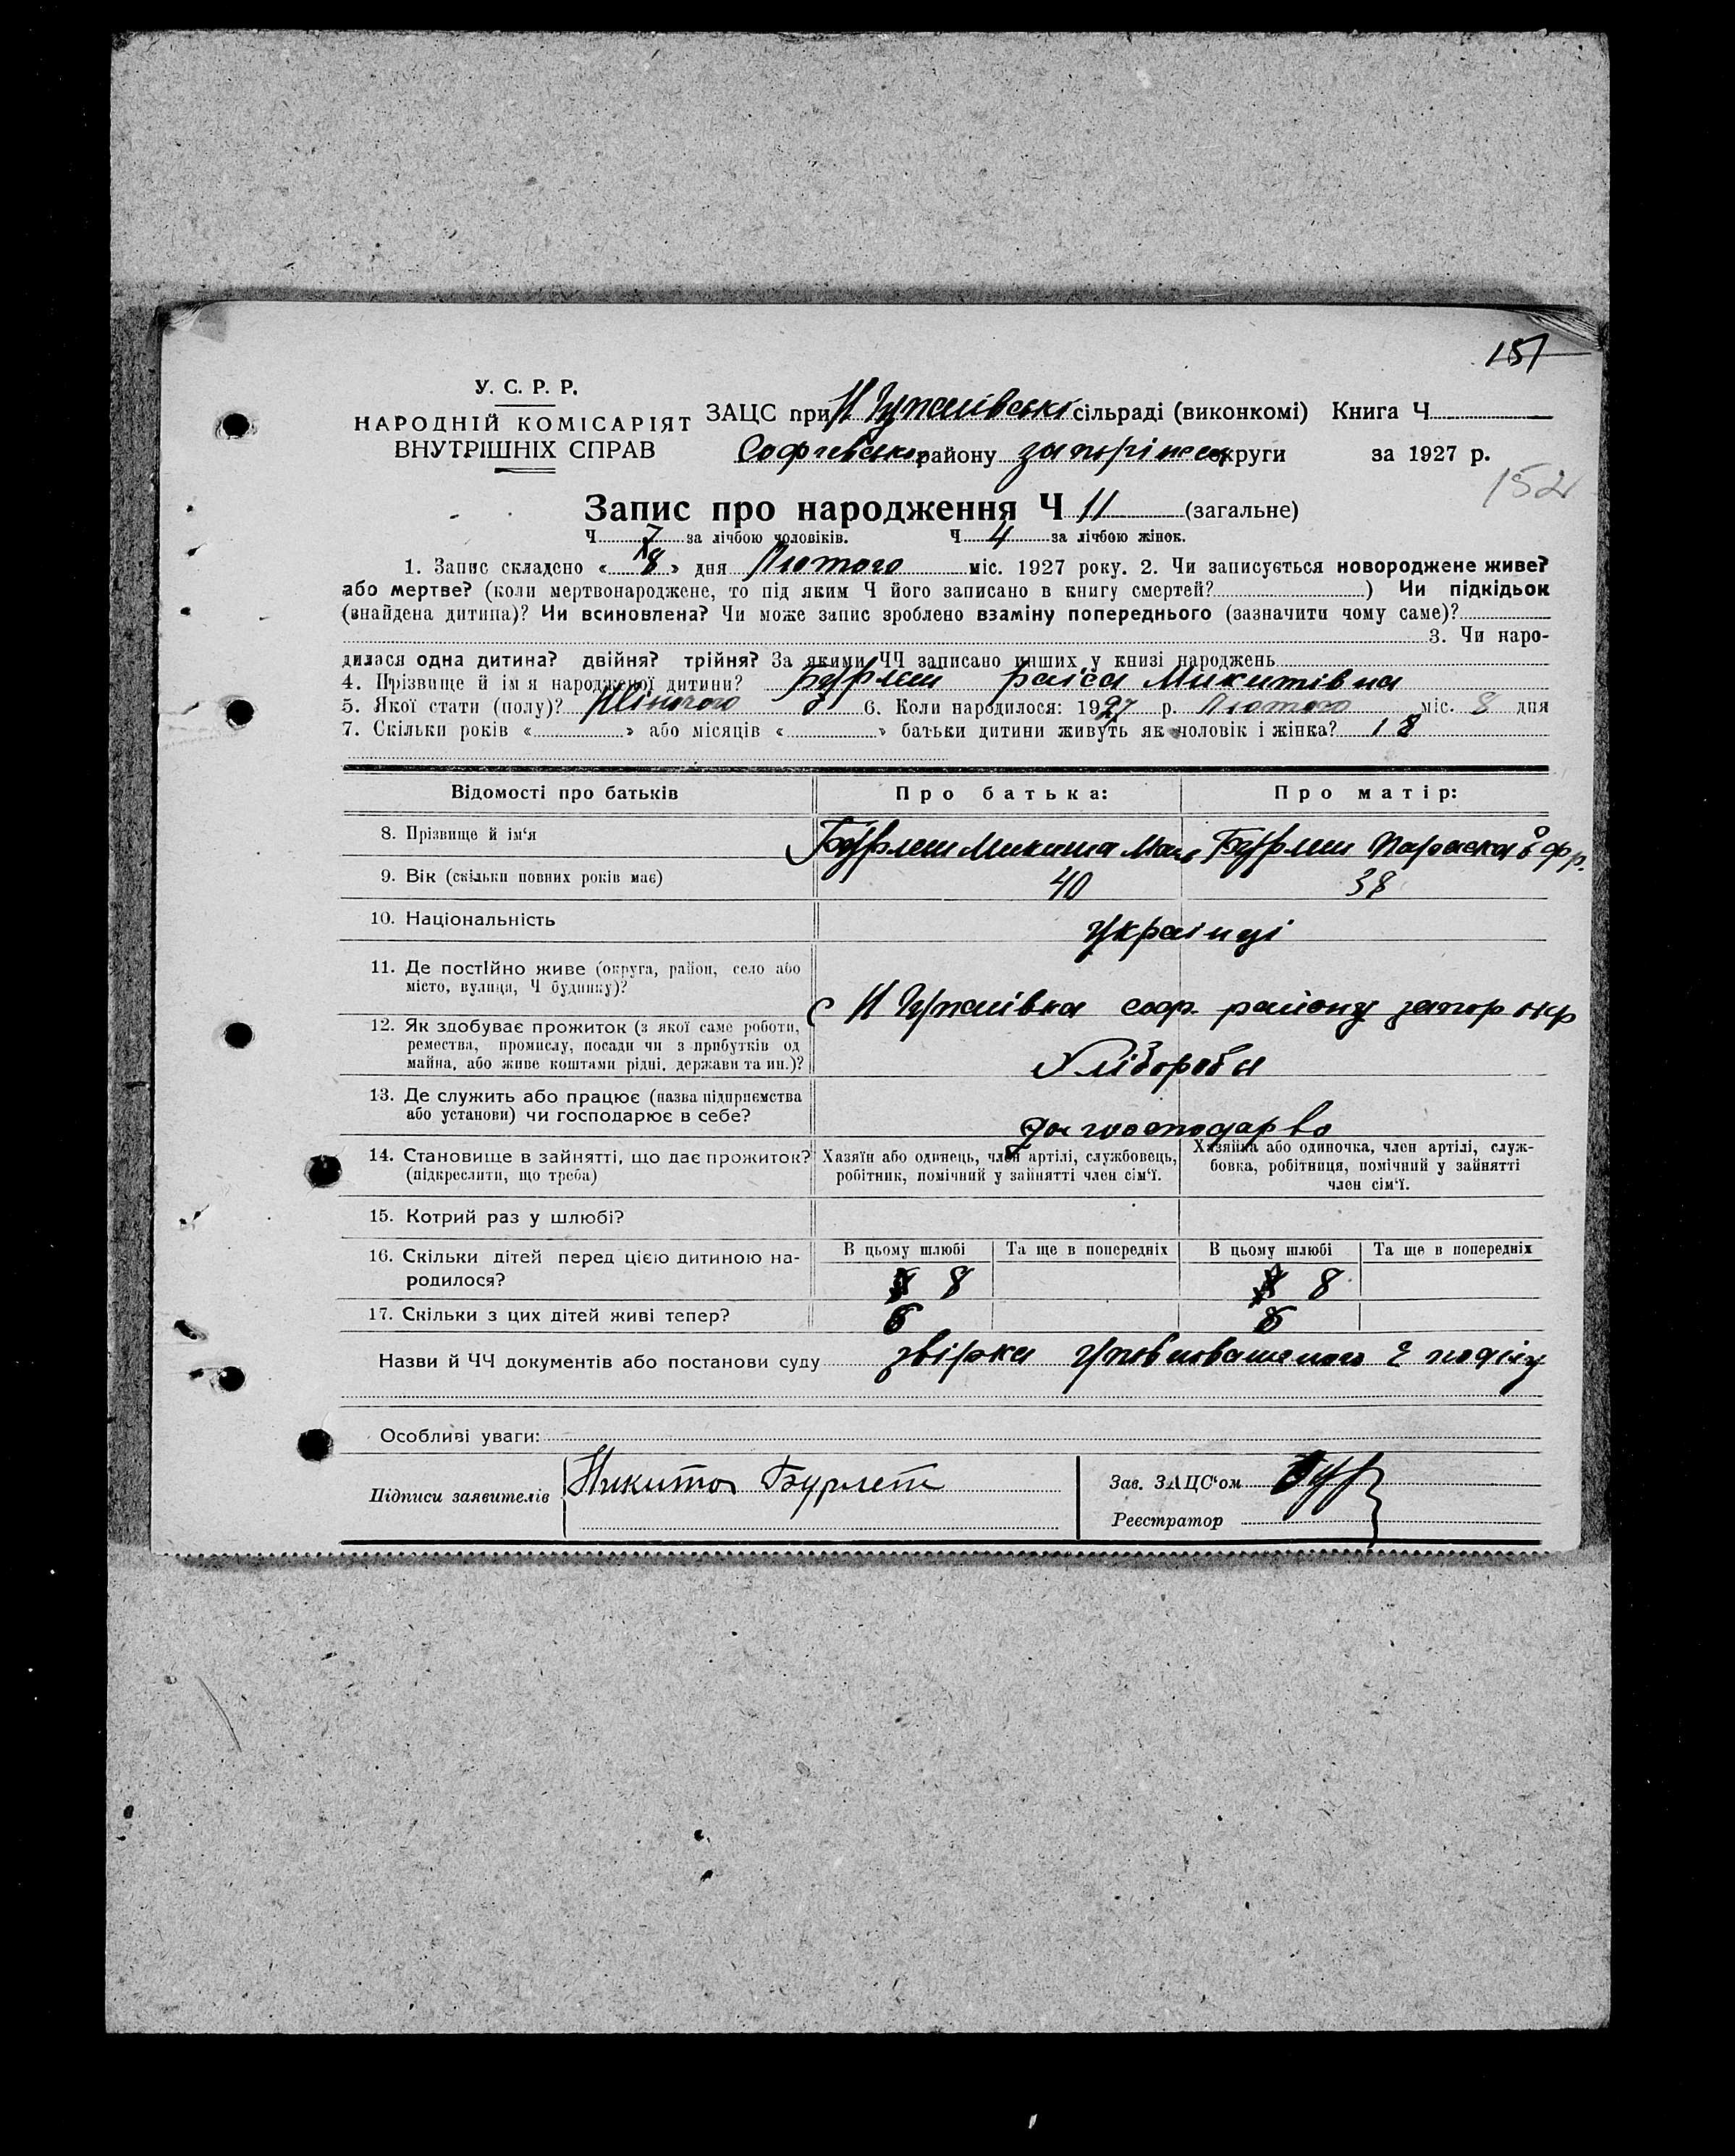 151
У. С. Р. Р.
НАРОДНІЙ КОМІСАРІЯТ
ВНУТРІШНІХ СПРАВ
ЗАЦС при Н сільраді (виконкомі) Книга Ч
району округи за 1927 р.
152
Запис про народження Ч 11 (загальне)
Ч 7 за лічбою чоловіків. Ч 4 за лічбою жінок.
1. Запис складено « 8 » дня Лютого міс. 1927 року. 2. Чи записується новороджене живе?
або мертве? (коли мертвонароджене, то під яким Ч його записано в книгу смертей? ) Чи підкідьок
(знайдена дитина)? Чи всиновлена? Чи може запис зроблено взаміну попереднього (зазначити чому саме)?
3. Чи наро-
дилася одна дитина? двійня? трійня? За якими ЧЧ записано инших у книзі народжень
4. Прізвище й ім я народженої дитини? раіса Микитівна
5. Якої стати (полу)? Жіночого 6. Коли народилося: 1927 р. Лютого міс. 8 дня
7. Скільки років « » або місяців « » батьки дитини живуть як чоловік і жінка? 18
Відомості про батьків Про батька: Про матір:
8. Прізвище й ім‘я Микита Параска
9. Вік (скільки повних років має) 40 38
10. Національність Украінці
11. Де постійно живе (округа, район, село або
місто, вулиця, Ч будинку)?
С Н соф. району запор окр
12. Як здобуває прожиток (з якої саме роботи,
ремества, промислу, посади чи з прибутків од
майна, або живе коштами рідні, держави та ин.)?
Хлібороби
13. Де служить або працює (назва підприємства
або установи) чи господарює в себе?
14. Становище в зайнятті, що дає прожиток?
(підкреслити, що треба)
Хазяїн або одинець, член артілі, службовець,
робітник, помічний у зайнятті член сім‘ї.
Хазяйка або одиночка, член артілі, служ-
бовка, робітниця, помічний у зайнятті
член сім‘ї.
15. Котрий раз у шлюбі?
16. Скільки дітей перед цією дитиною на-
родилося?
В цьому шлюбі Та ще в попередніх В цьому шлюбі Та ще в попередніх
8 8
17. Скільки з цих дітей живі тепер?
Назви й ЧЧ документів або постанови суду звірка
Особливі уваги:
Підписи заявителів Никита
Зав. ЗАЦС‘ом
Реєстратор